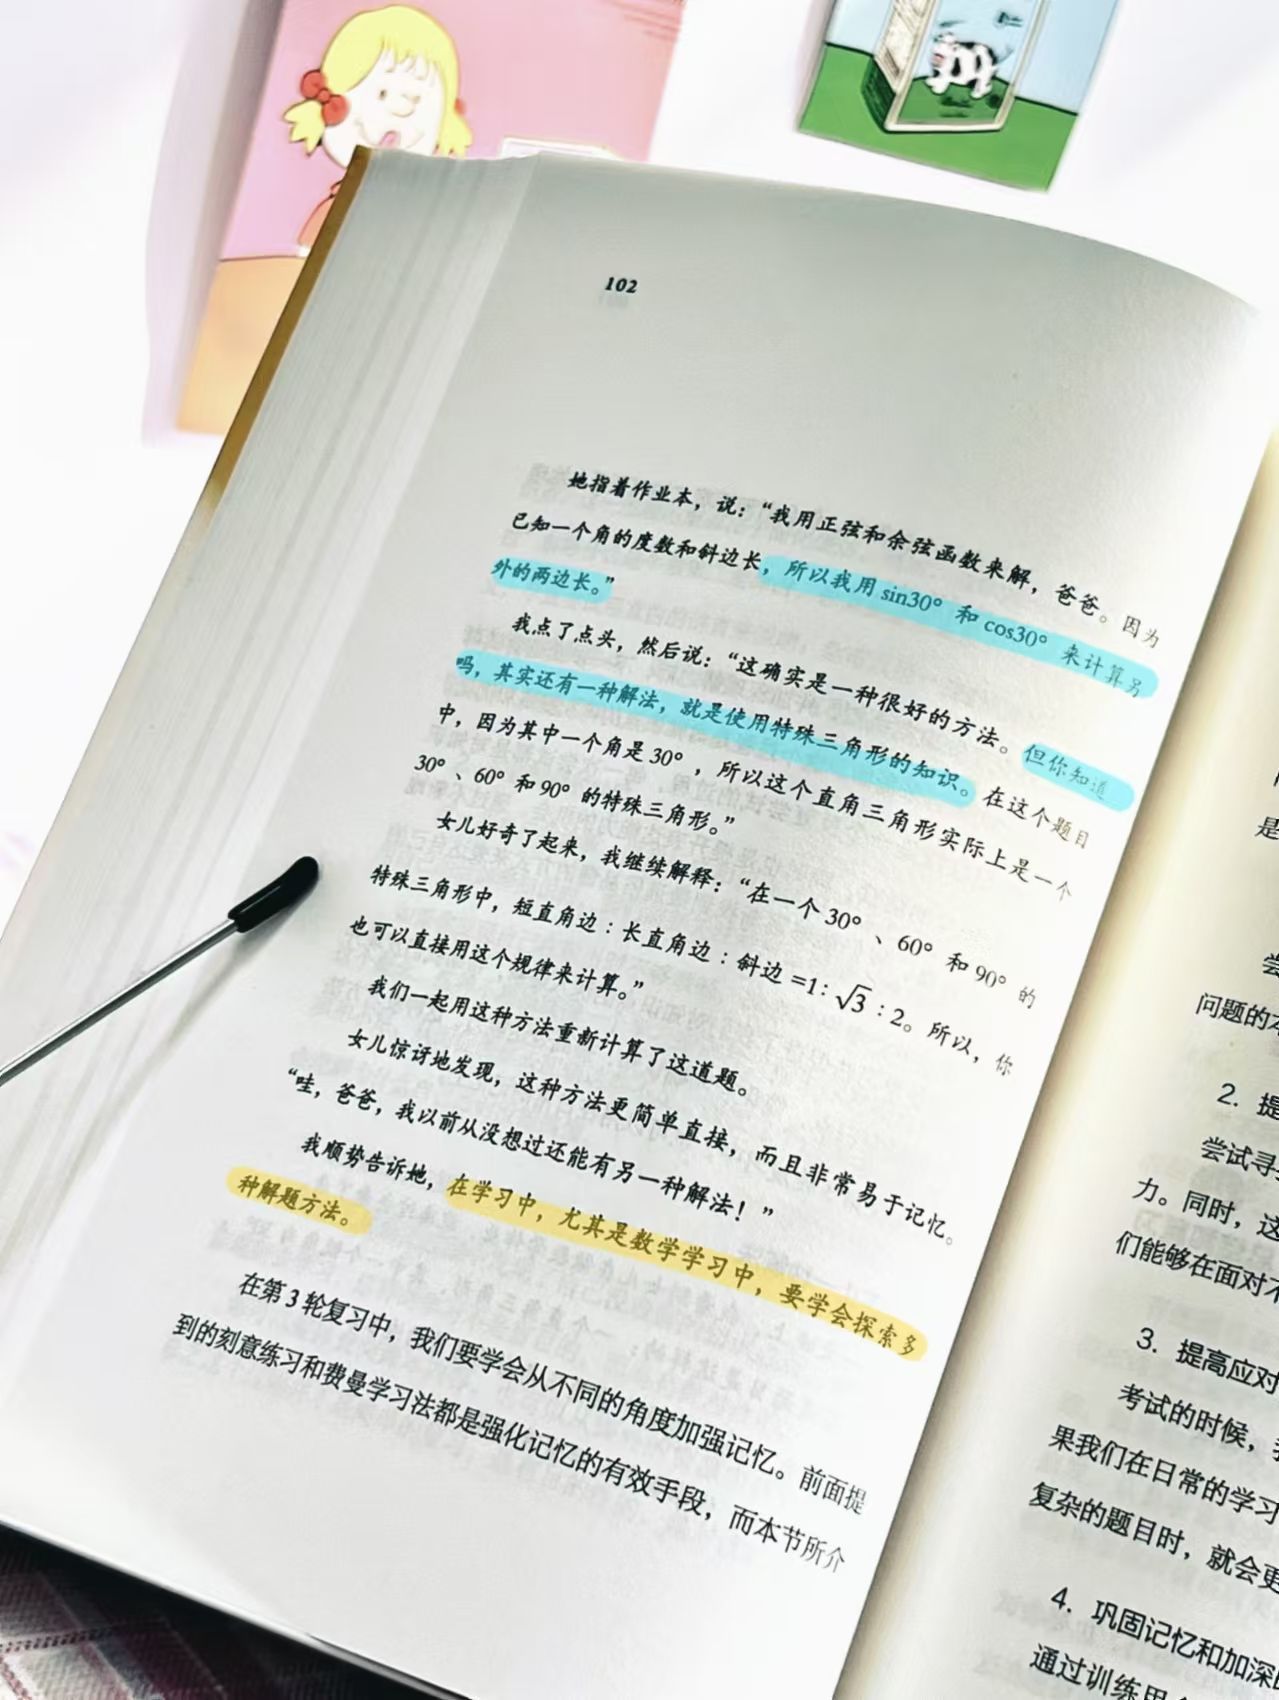 102
她指着作业本，说：“我用正弦和余弦函数来解，爸爸。因为
已知一个角的度数和斜边长，所以我用 sin30° 和 cos30° 来计算另
外的两边长。”
我点了点头，然后说：“这确实是一种很好的方法。但你知道
吗，其实还有一种解法，就是使用特殊三角形的知识。在这个题目
中，因为其中一个角是 30°，所以这个直角三角形实际上是一个
30°、60° 和 90° 的特殊三角形。”
女儿好奇了起来，我继续解释：“在一个 30°、60° 和 90° 的
特殊三角形中，短直角边：长直角边：斜边 =1：√3：2。所以，你
也可以直接用这个规律来计算。”
我们一起用这种方法重新计算了这道题。
女儿惊讶地发现，这种方法更简单直接，而且非常易于记忆。
“哇，爸爸，我以前从没想过还能有另一种解法！”
我顺势告诉她，在学习中，尤其是数学学习中，要学会探索多
种解题方法。
在第 3 轮复习中，我们要学会从不同的角度加强记忆。前面提
到的刻意练习和费曼学习法都是强化记忆的有效手段，而本节所介
是
尝
问题的本
2. 提
尝试寻
力。同时，这
们能够在面对不
3. 提高应对
考试的时候，
果我们在日常的学习
复杂的题目时，就会更
4. 巩固记忆和加深
通过训练用